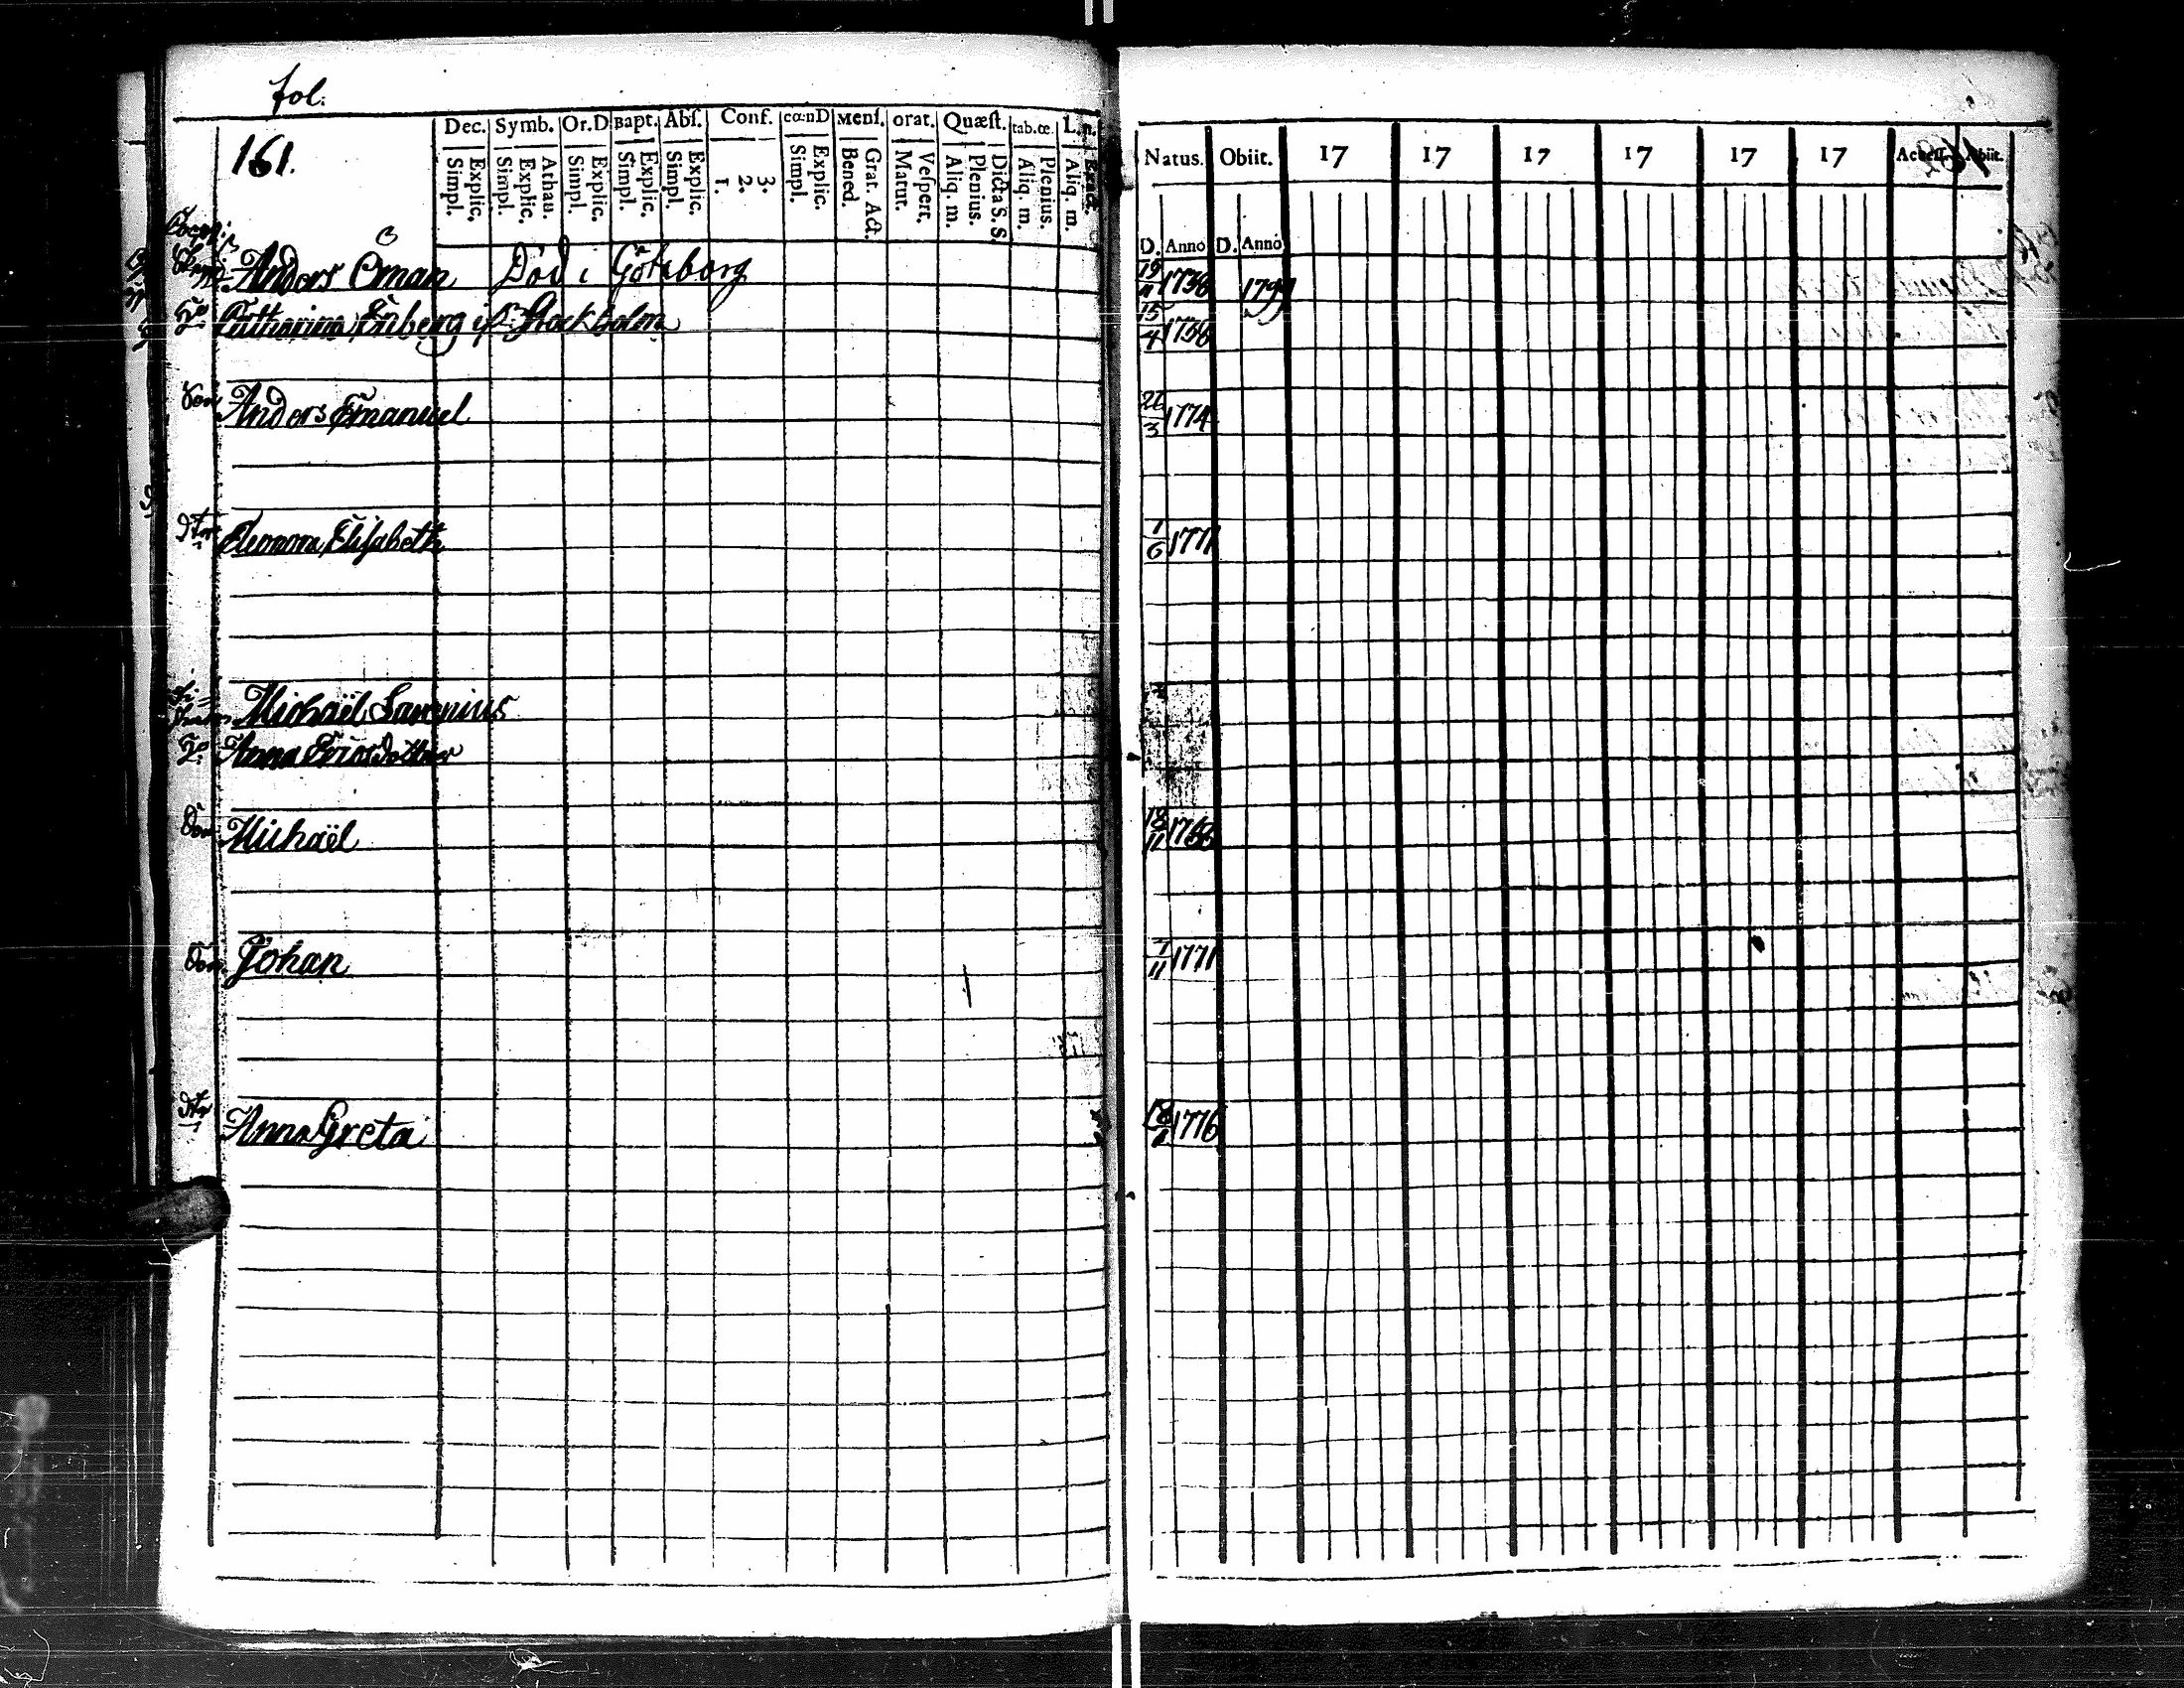 fol:
161.
Dec. Symb. Or.D Bapt. Abſ. Conf. cœnD Menſ. orat. Quæſt. tab.œ. L.n.
Simpl. Explic. Simpl. Explic. Athan. Simpl. Explic. Simpl. Explic. Simpl. Explic. 1. 2. 3. Simpl. Explic. Bened. Grat. Act. Matur. Veſpert. Aliq. m. Plenius. Dicta S. S. Aliq. m. Plenius. Aliq. m.
Natus. Obiit. 17 17 17 17 17 17 Acceſſ. Abiit.
D. Anno D. Anno
Anders Öman Död i Göteborg 19/11 1736 1791
Hu Catharina Friberg i Stockholm 15/4 1736
Son Anders Emanuel 26/3 1774
dtr Eleonora Elisabeth 1/6 1771
Michaël
Hu Anna Ersdotter
Son Michaël 18/11 1768
Son Johan 7/11 1771
dtr Anna Greta 1776